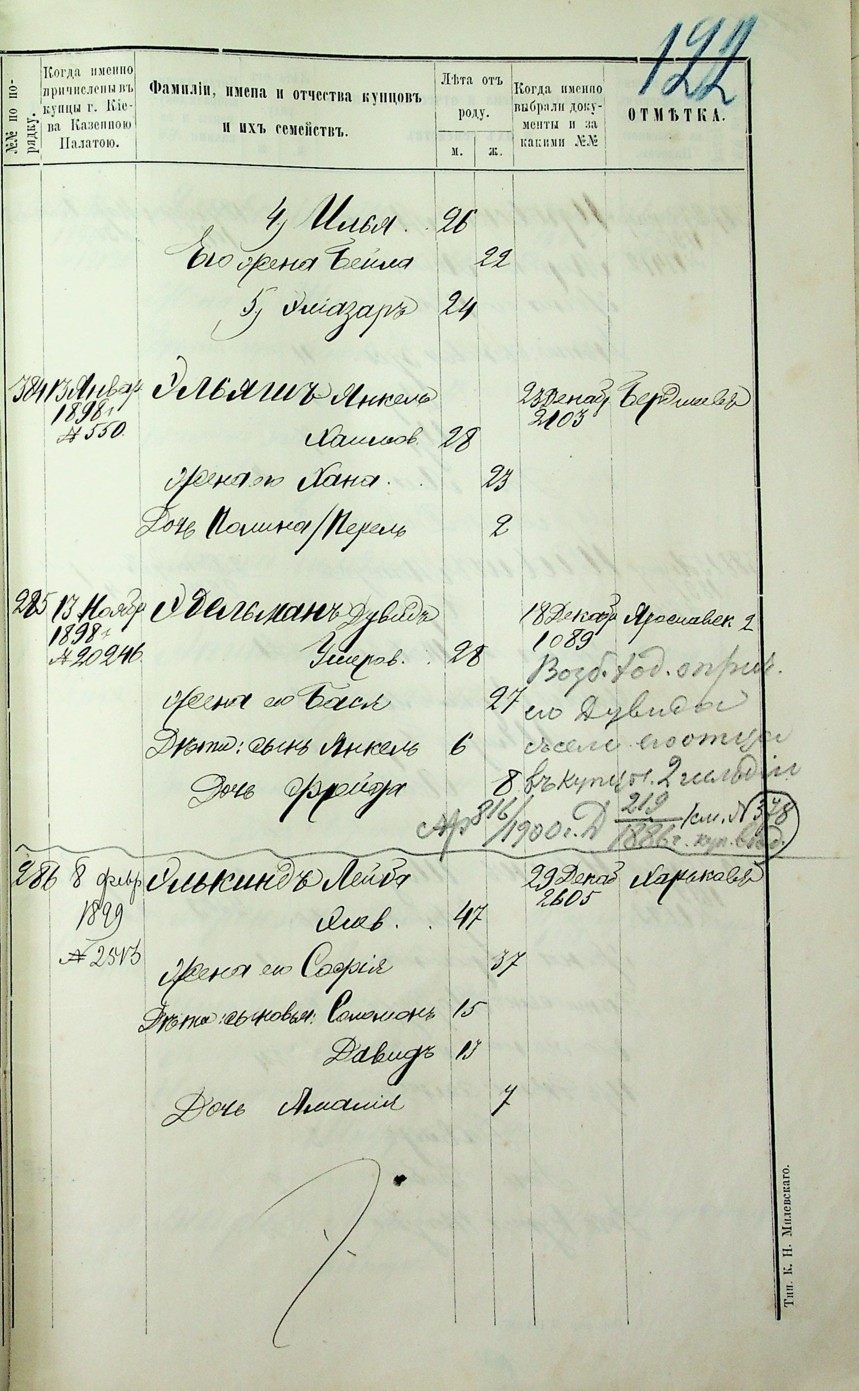 122
№№ по по-
рядку.
Когда именно
причислены въ
купцы г. Кіе-
ва Казенною
Палатою.
Фамиліи, имена и отчества купцовъ
и ихъ семействъ.
Лѣта отъ
роду.
м. ж.
Когда именно
выбрали доку-
менты и за
какими №№
ОТМѢТКА.
4) Илья 26
Его жена Бейла 22
5) Эліазаръ 24
384 13 Январ Эльяшъ Янкель 23 Декаб Бердичевъ
1898 г 2103
№ 550 Хаимов. 28
Жена его Хана 23
Дочь Полина/Перель 2
285 13 Ноябр Эдельманъ Дувидъ 18 Декабр Ярославск 2
1898 г 1089
№ 20246 28
Жена его Бася 27
его Дувида
Дѣти: сынъ Янкель 6
его отца
Дочь Фрейда 8
въ купцы 2 гильдіи
816/1900 г. Д 219/1886 г. /см. № 378
286 8 февр Элькиндъ Лейба 29 Декаб Харьковъ
1899 2605
47
№ 2513
Жена его Софія 37
Дѣти: сыновья: Соломонъ 15
Давидъ 13
Дочь Амалія 7
Тип. К. Н. Милевскаго.